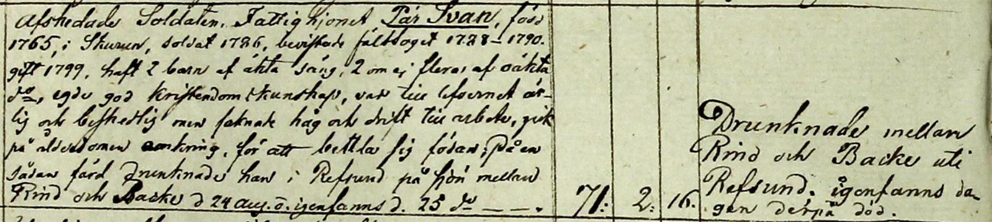 Afskedade Soldaten, Fattighjonet Pär Svan, född
1765, i Skurun, soldat 1786, bevistade fälttoget 1788–1790.
gift 1799, haft 2 barn af äkta säng, 2 om ej flera af oäkta
do, egde god Kristendomskunskap, var till lefvernet är-
lig och beskedlig men saknade håg och drift till arbete, gick
på ålderdomen omkring, för att bettla sig födan; På en
sådan färd drunknade han i Refsund på sjön mellan
Rind och Backe d 24 aug. o. igenfanns d. 25 do
71. 2. 16.
Drunknade mellan
Rind och Backe uti
Refsund. igenfanns da-
gen derpå död.